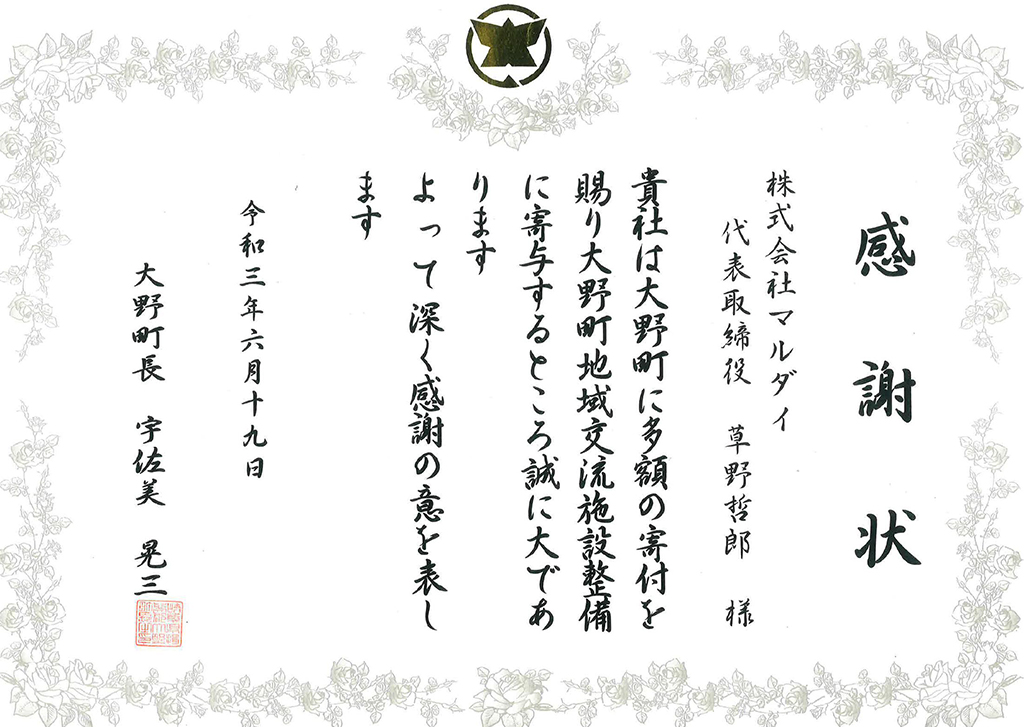 感謝状
株式会社マルダイ
代表取締役 草野哲郎 様
貴社は大野町に多額の寄付を
賜り大野町地域交流施設整備
に寄与するところ誠に大であ
ります
よって深く感謝の意を表し
ます
令和三年六月十九日
大野町長 宇佐美 晃三